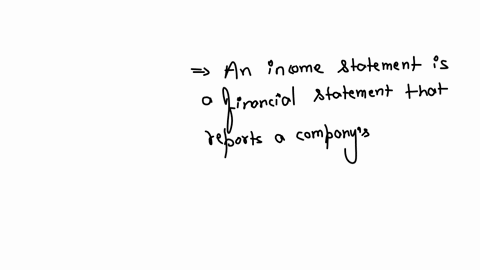 ⇒ An income statement is
a financial statement that
reports a company's